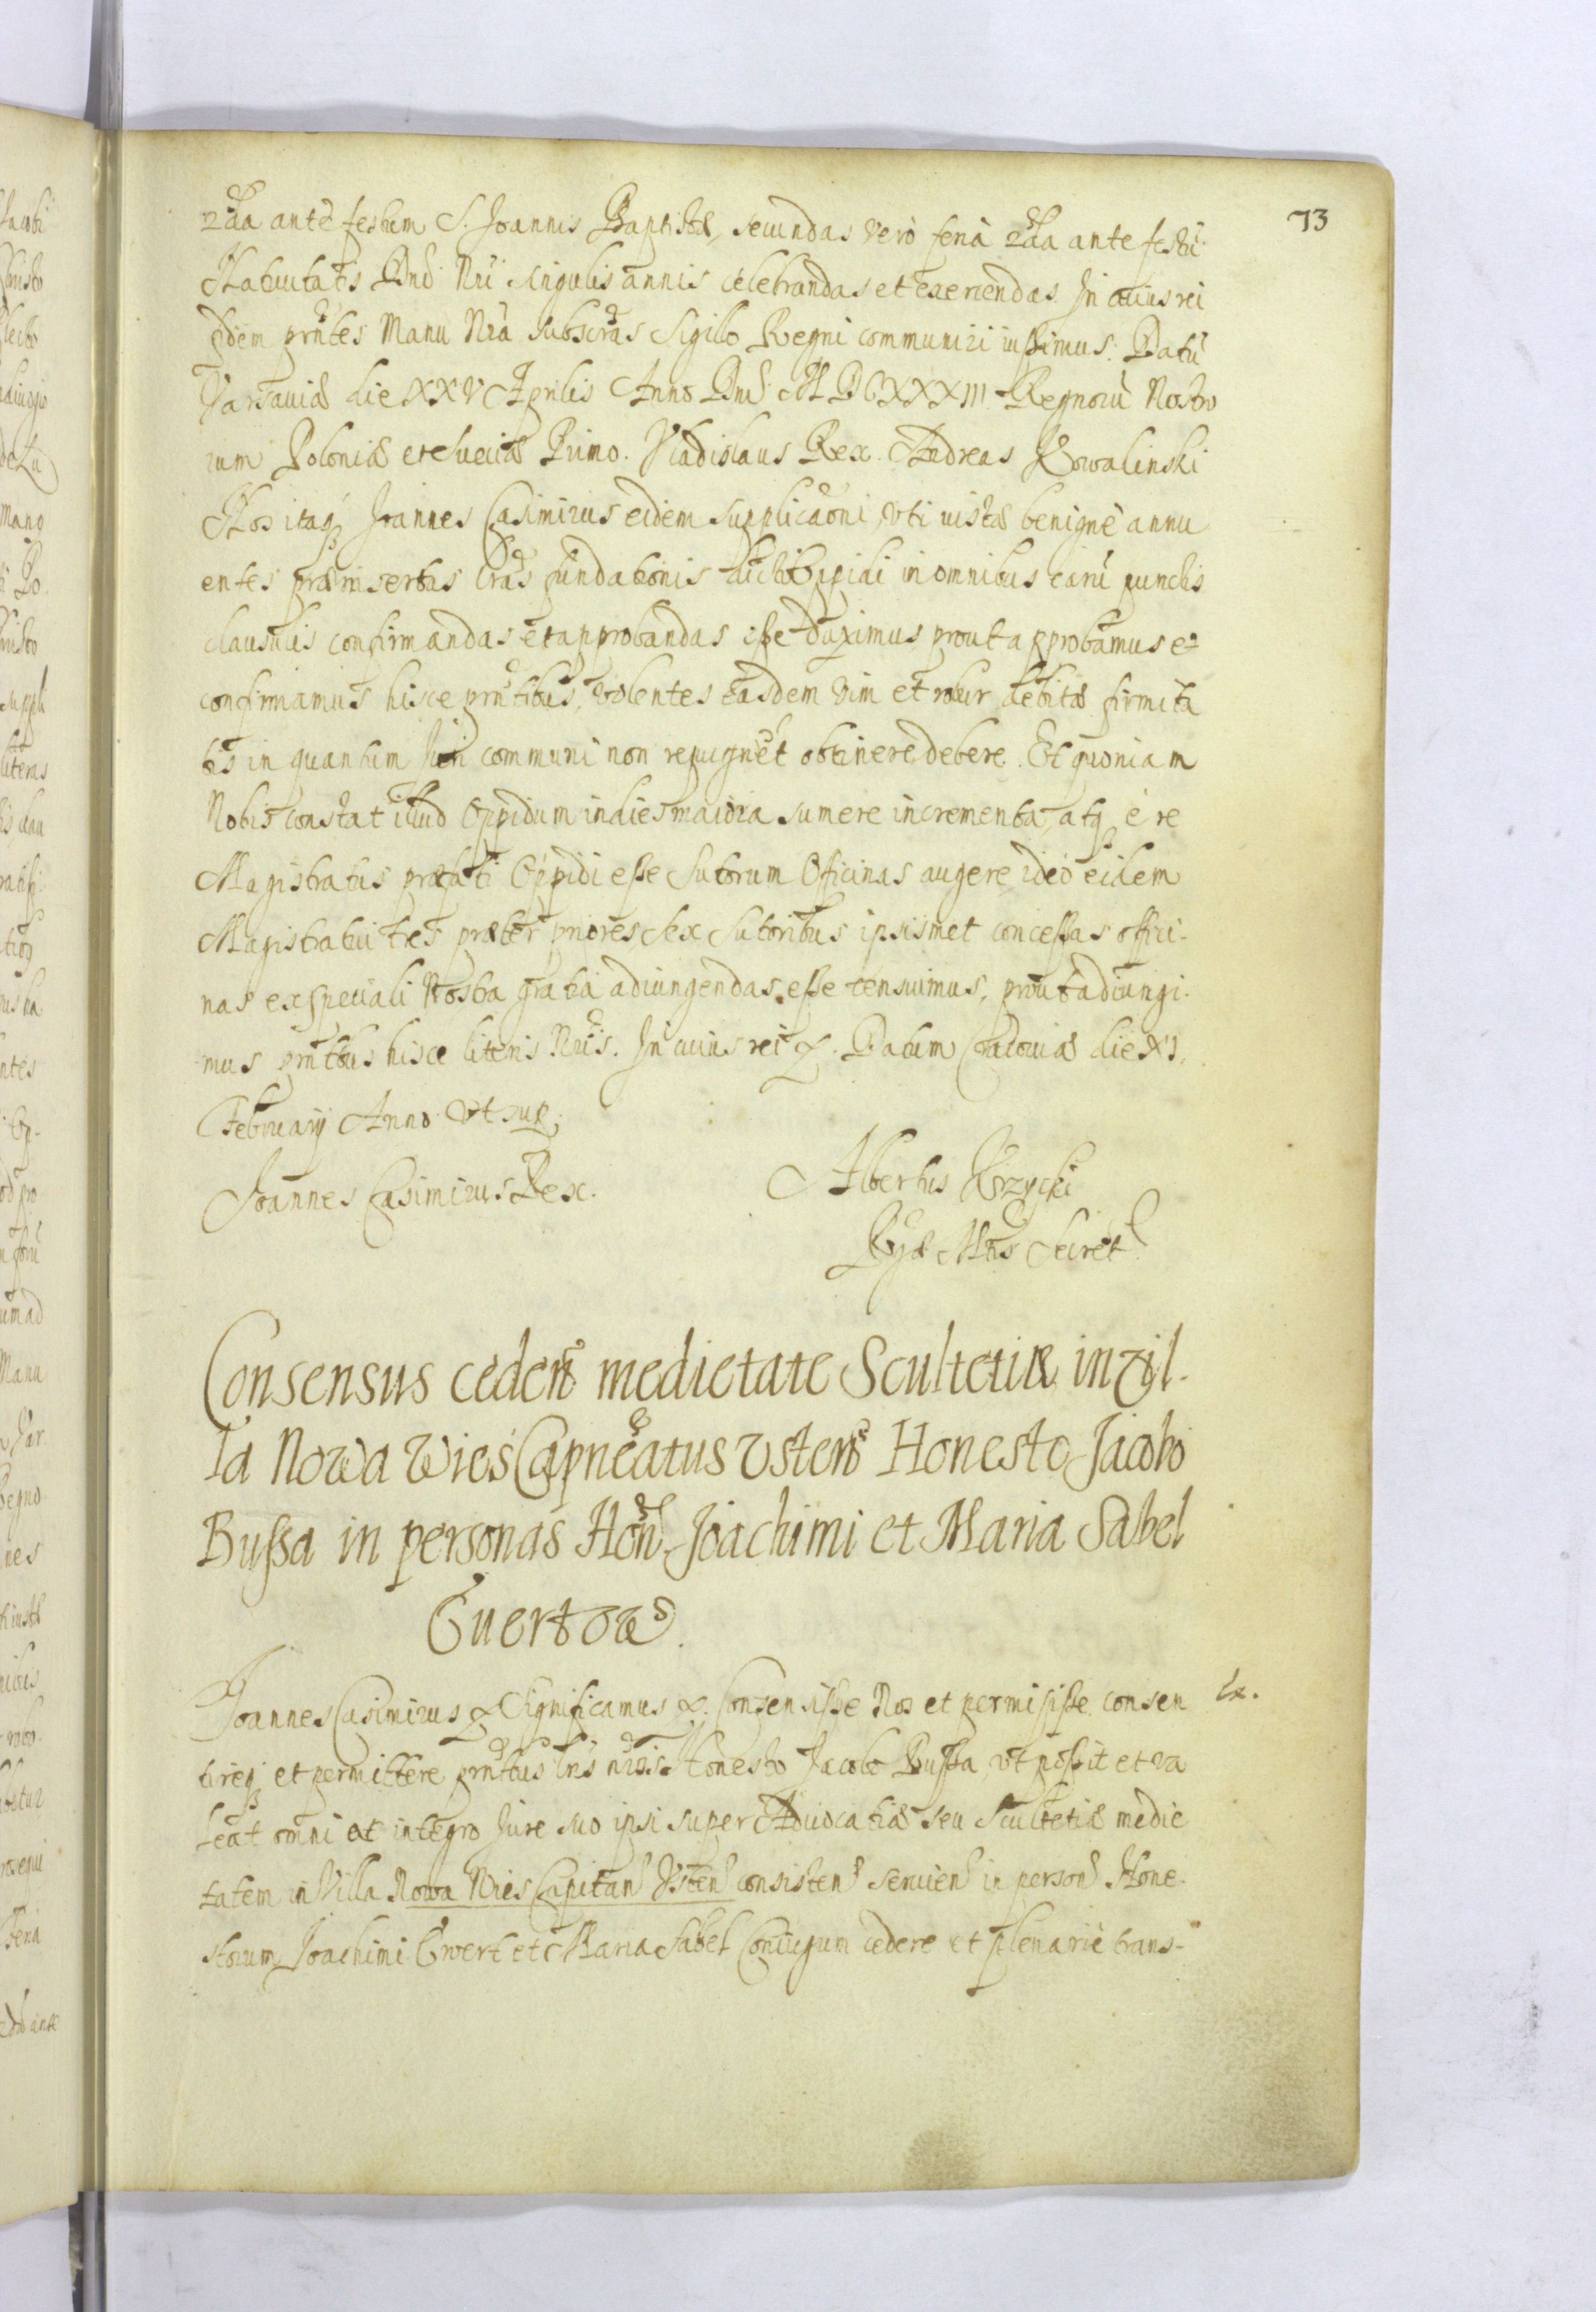 73
2da ante festum S. Joannis Baptistæ, secundas vero feria 2da ante festũ
Natiuitatis Dnĩ Nrĩ singulis annis celebrandas et exercendas. In cuius rei
fidem prñtes Manu Nrã subscrãs Sigillo Regni communiri iussimus. Datũ
Varsauiæ die XXV Aprilis Anno Dnĩ MDCXXXIII Regnorũ Nostro
rum Poloniæ et Sueciæ Primo. Vladislaus Rex. Andreas Kowalinski
Nos itaq Joannes Casimirus eidem supplicaõni, vti iustæ benignè annu
entes præinsertas lrãs fundationis dicti Oppidi in omnibus earũ punctis
clausulis confirmandas et approbandas esse duximus prout approbamus et
confirmamus hisce prñtibus, volentes easdem vim et robur debitæ firmita
tis in quantum Juri communi non repugnẽt obtinere debere. Et quoniam
Nobis constat illud Oppidum indies maiora sumere incrementa, atq è re
Magistratus præfati Oppidi esse Sutorum Officinas augere, ideò eidem
Magistratui tres præter priores sex Sutoribus ipsismet concessas offici-
nas ex speciali Nostra gratia adiungendas esse censuimus, prout adiungi-
mus prñtibus hisce literis Nris. In cuius rei &. Datum Cracouiæ die XI.
February Anno vt sup.
Joannes Casimirus Rex.
Albertus Krzycki
Rgiæ Mtis Secret
Consensus ceden medietate Scultetiæ in vil-
la Nowa Wies Capneatus Vsten Honesto Jacobo
Bussa in personas Hon Joachimi et Maria Sabel
Evertow
Joannes Casimirus & Significamus &. Consensisse Nos et permisisse consen
Ex.
tireq et permittere prñtibus lris nris Honesto Jacobo Bussa, vt possit et va
leat omni et integro Jure suo ipsi super Aduocatiæ seu Scultetiæ medie
tatem in Villa Nowa Wies Capitan Vsten consisten seruien in person Hone-
storum Joachimi Ewert et Maria Sabel Coniugum cedere et plenariè trans-